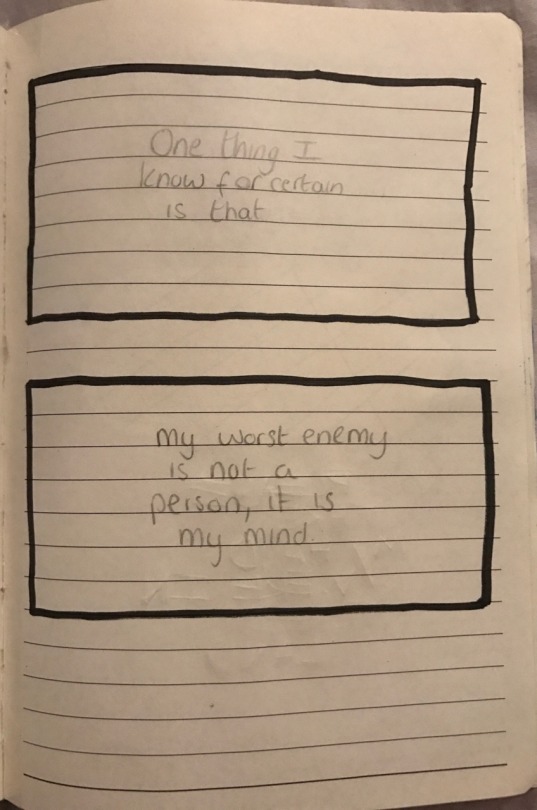 One thing I
know for certain
is that
my worst enemy
is not a
person, it is
my mind.